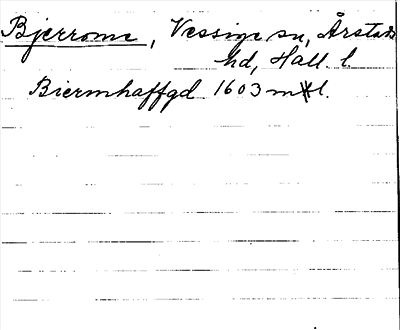 Bjerrome, Vessige sn, Årstads
hd, Hall. l.
Biermhaffgd 1603 m l.